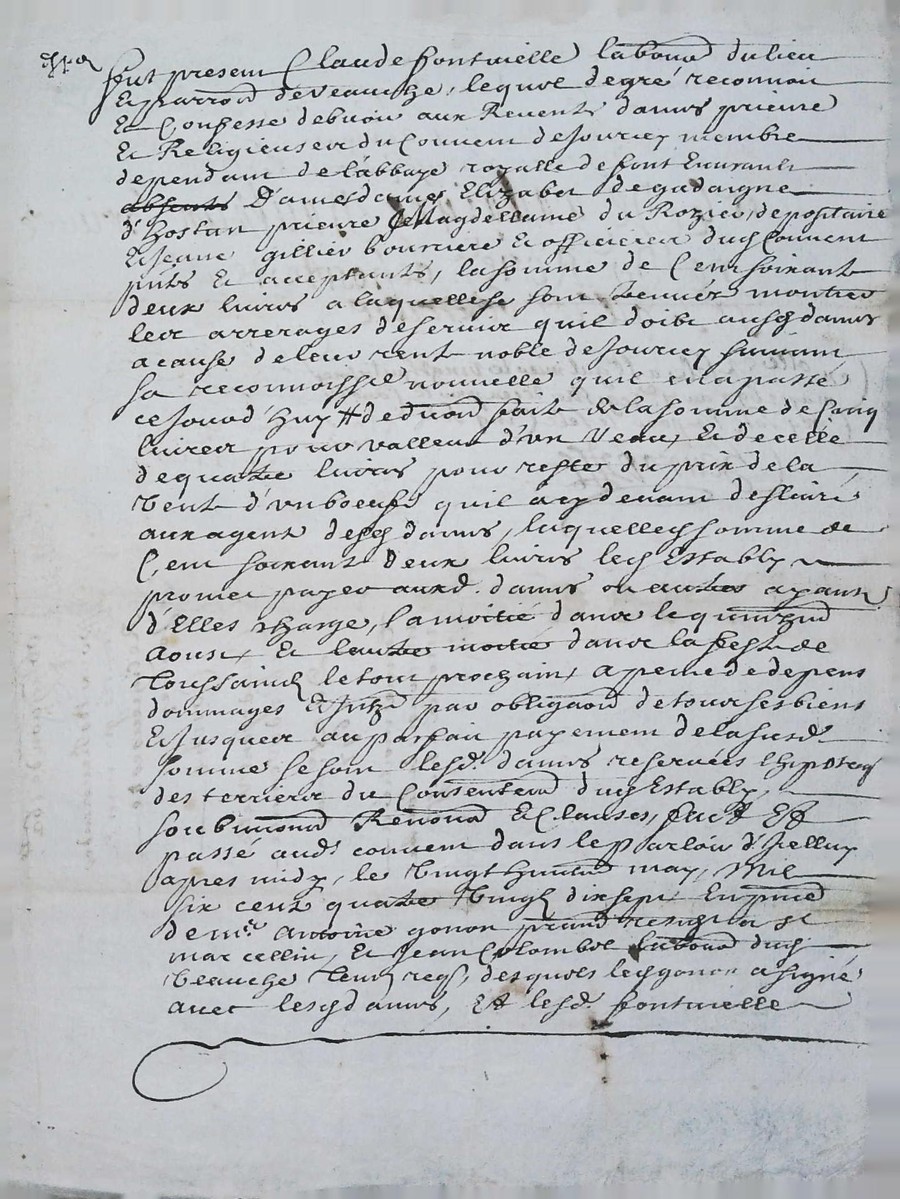 fut present Claude fontvielle laboură du lieu
Et parroă de Veauche, lequel de gré reconnoit
Et Confesse debvoir aux Reverentes dames prieure
Et Religieuses du Couvent de Jourcey membre
dependant de l'abbaye royalle de font Evurault
absents D'amesdames Elizabet de gadaigne
d'hostun prieure Magdellaine du Rozier, depositaire
Et Jeane gillier boursiere Et officieres dud Couvent
pñts Et acceptants, la somme de Cent soixante
deux livres a laquelle se sont trouvés monter
les arrerages de servis quil doibt ausd dames
a cause de leur rente noble de Jourcey suivant
sa reconnoissce nouvelle quil en a passé
ce jourd'huy deduon faite de la somme de Cinq
livres pour valleur d'un Veau, Et de celle
de quatre livres pour reste du prix de la
Vente d'un boeuf quil a cy devant deslivré
aux agent desd dames, laquelle somme de
Cent soixante deux livres led Estably
promet payer auxd. dames ou autres ayant
d'Elles charge, la moitié dans le quinze
Aoust, Et l'autre moitié dans la feste de
Toussainctz le tout prochain, a peine de depens
dommages Et par obligaõn de tous ses biens
Et Jusques au parfait payement de la susd
somme se sont lesd. dames reservées l'hipoteq
des terriers du Consentem dud Estably,
soubmõns Renonõns Et Clauses, faict Et
passé aud couvent dans le parloir d'Jcelluy
apres midy, le Vingt huit may, Mil
six cent quatre Vingtz dix sept En pñce
de mre. Antoine gonon st
marcellin, Et Jean Colombet laboură dud
Veauche Tesm reqs, desquels led gonon a signé
avec lesd dames, Et led fontvielle